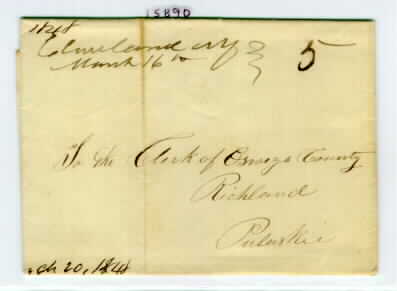 15890
1848
Cleveland NY
March 16th
5
To the Clerk of Oswego County
Richland
Pulaskie
ch 20, 1848